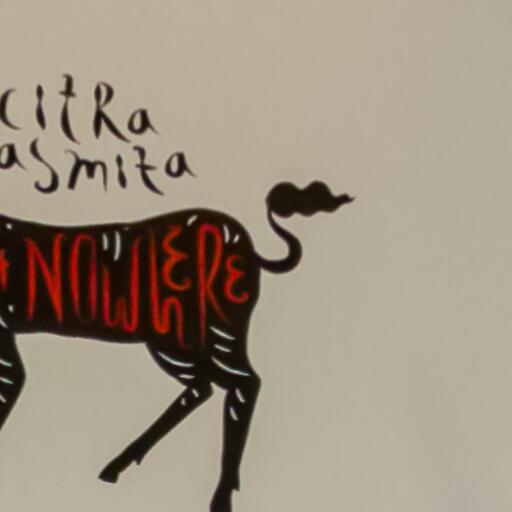 CitRa
asmita
NOWHERE